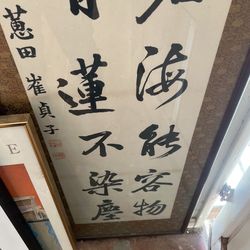 海能容物
蓮不染塵
田 崔貞子
E